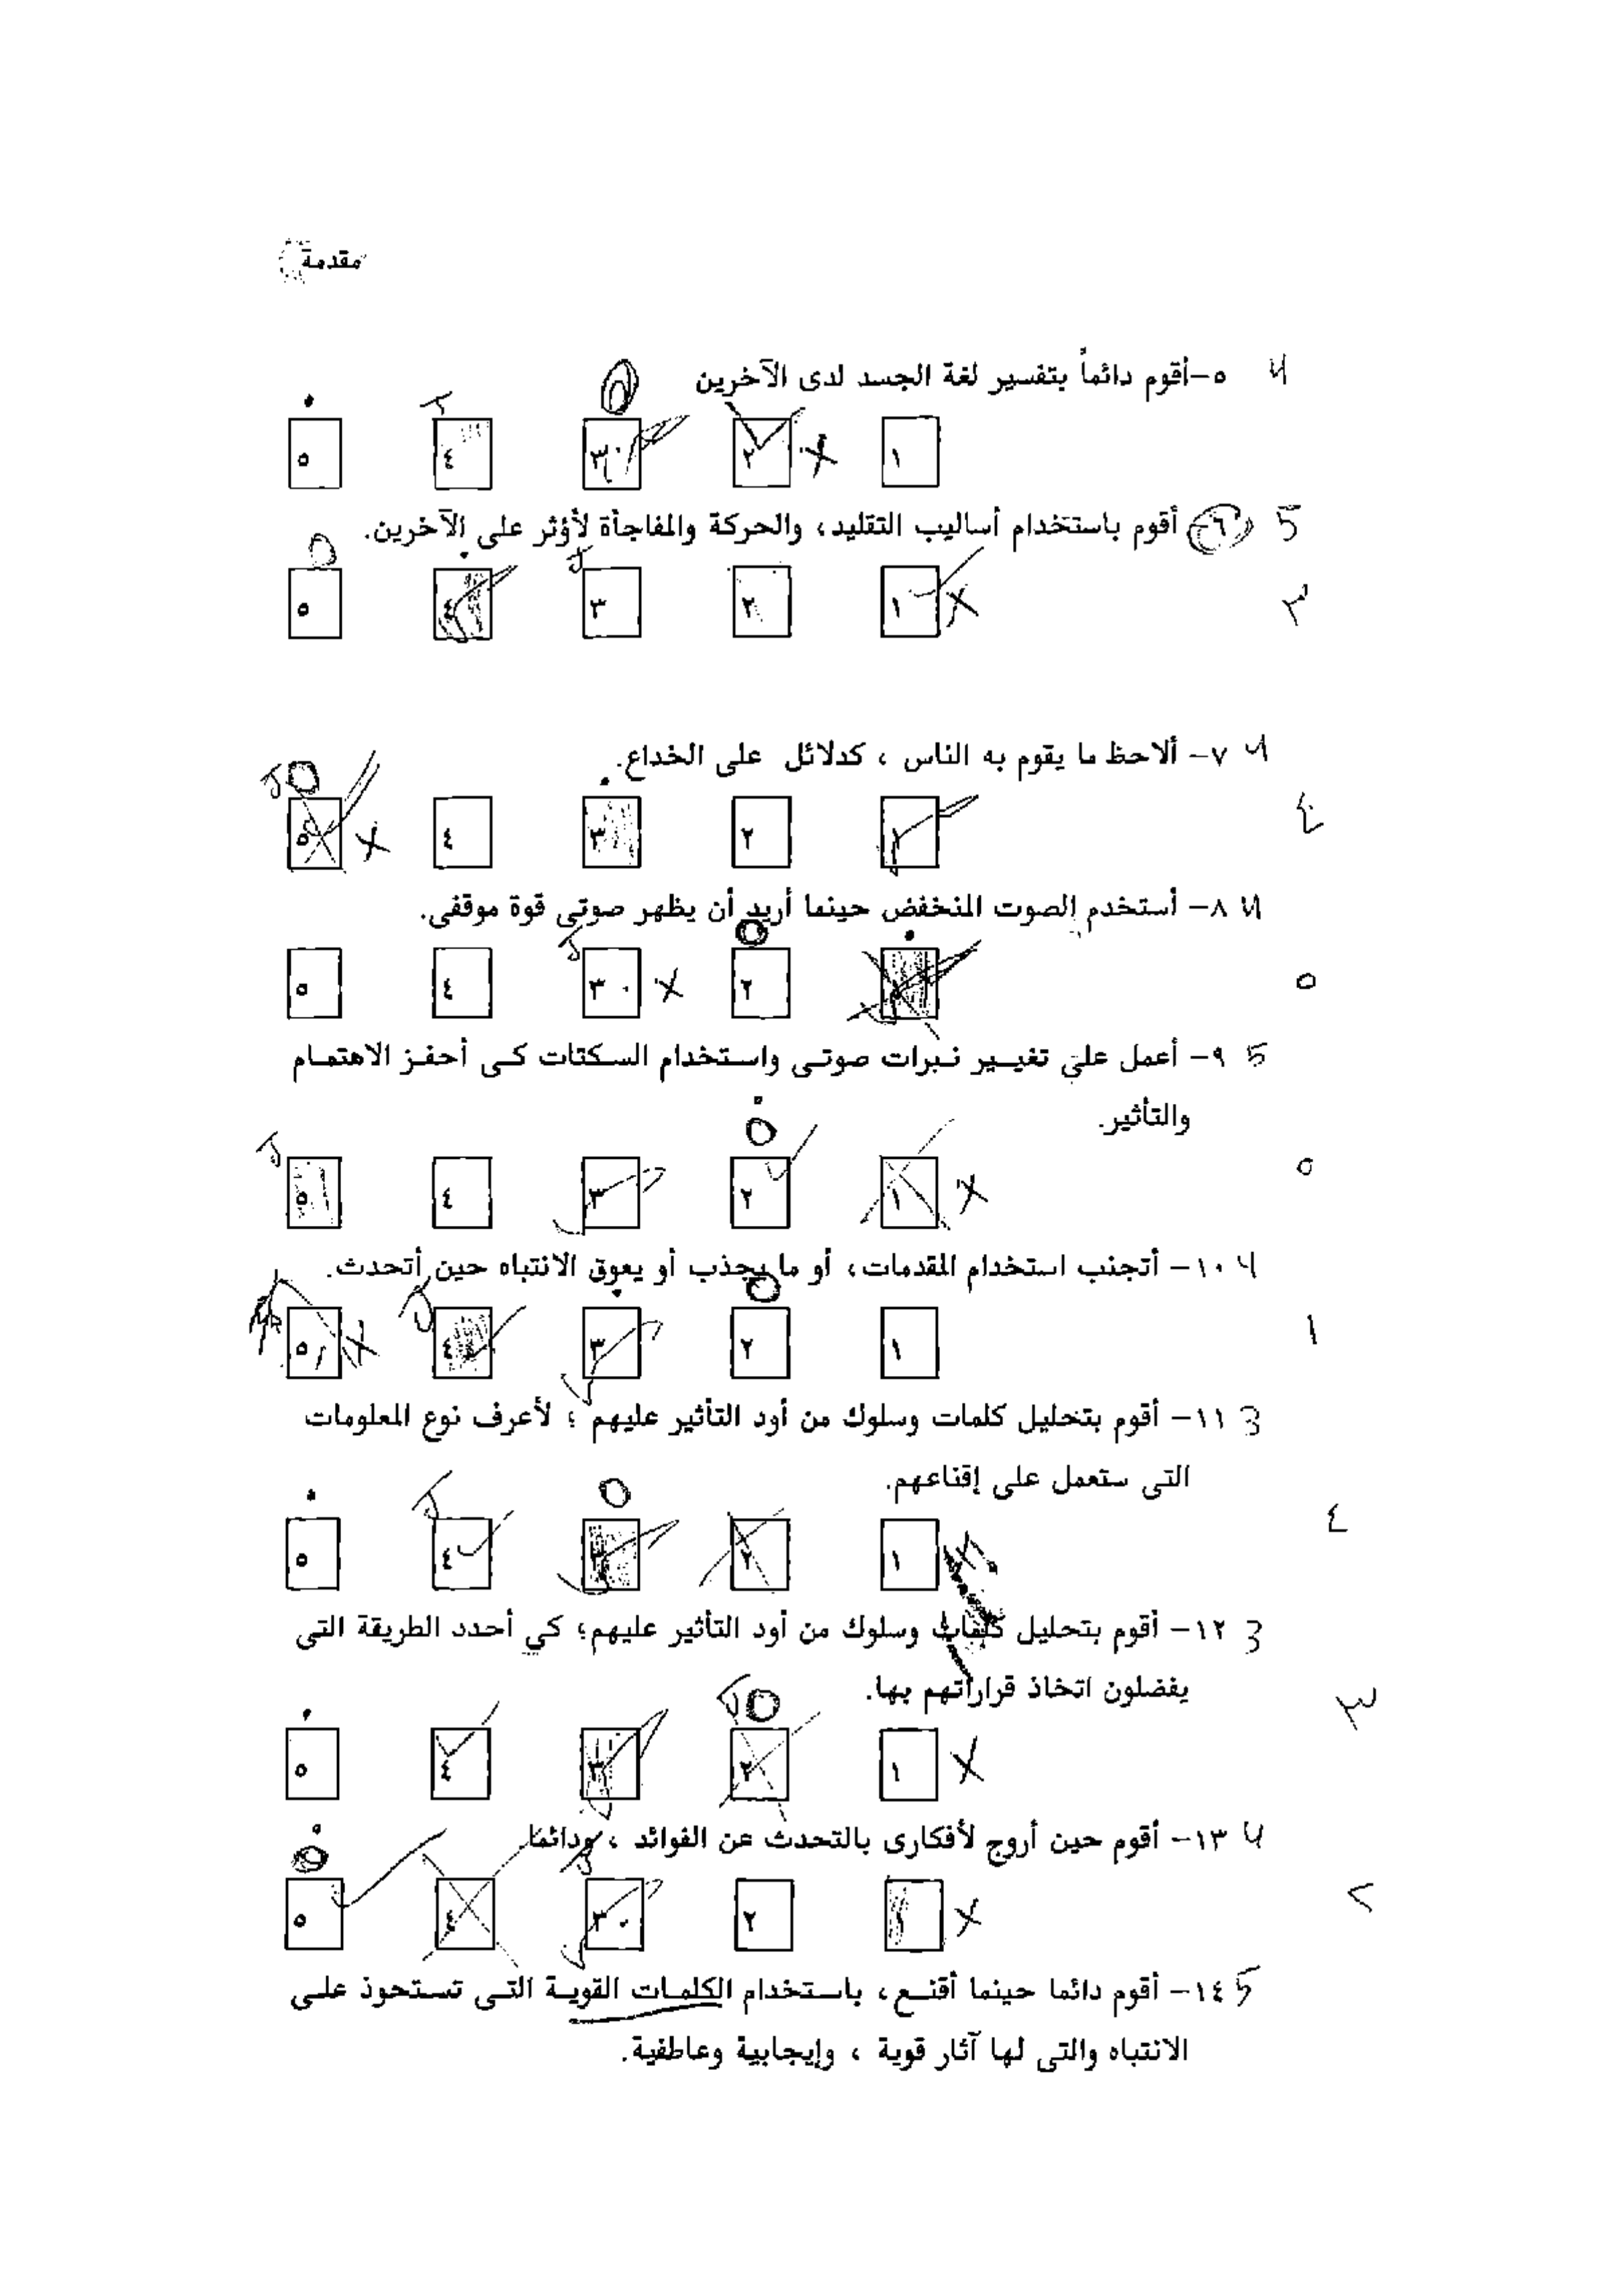 مقدمة
4 ٥-أقوم دائماً بتفسير لغة الجسد لدى الآخرين
١ ٢ ٣ ٤ ٥
5 ٦- أقوم باستخدام أساليب التقليد، والحركة والمفاجأة لأؤثر على الآخرين.
٣ ١ ٢ ٣ ٤ ٥
4 ٧- ألاحظ ما يقوم به الناس ، كدلائل على الخداع.
٤ ١ ٢ ٣ ٤ ٥
4 ٨- أستخدم الصوت المنخفض حينما أريد أن يظهر صوتى قوة موقفى.
٥ ١ ٢ ٣ ٤ ٥
5 ٩- أعمل على تغيير نبرات صوتى واستخدام السكتات كى أحفز الاهتمام
والتأثير.
٥ ١ ٢ ٣ ٤ ٥
4 ١٠- أتجنب استخدام المقدمات، أو ما يجذب أو يعوق الانتباه حين أتحدث.
١ ١ ٢ ٣ ٤ ٥
3 ١١- أقوم بتحليل كلمات وسلوك من أود التأثير عليهم ؛ لأعرف نوع المعلومات
التى ستعمل على إقناعهم.
٤ ١ ٢ ٣ ٤ ٥
3 ١٢- أقوم بتحليل كلمات وسلوك من أود التأثير عليهم؛ كى أحدد الطريقة التى
يفضلون اتخاذ قراراتهم بها.
٣ ١ ٢ ٣ ٤ ٥
4 ١٣- أقوم حين أروج لأفكارى بالتحدث عن الفوائد ، ودائما
١ ٢ ٣ ٤ ٥
5 ١٤- أقوم دائما حينما أقنع، باستخدام الكلمات القوية التى تستحوذ على
الانتباه والتى لها آثار قوية ، وإيجابية وعاطفية.